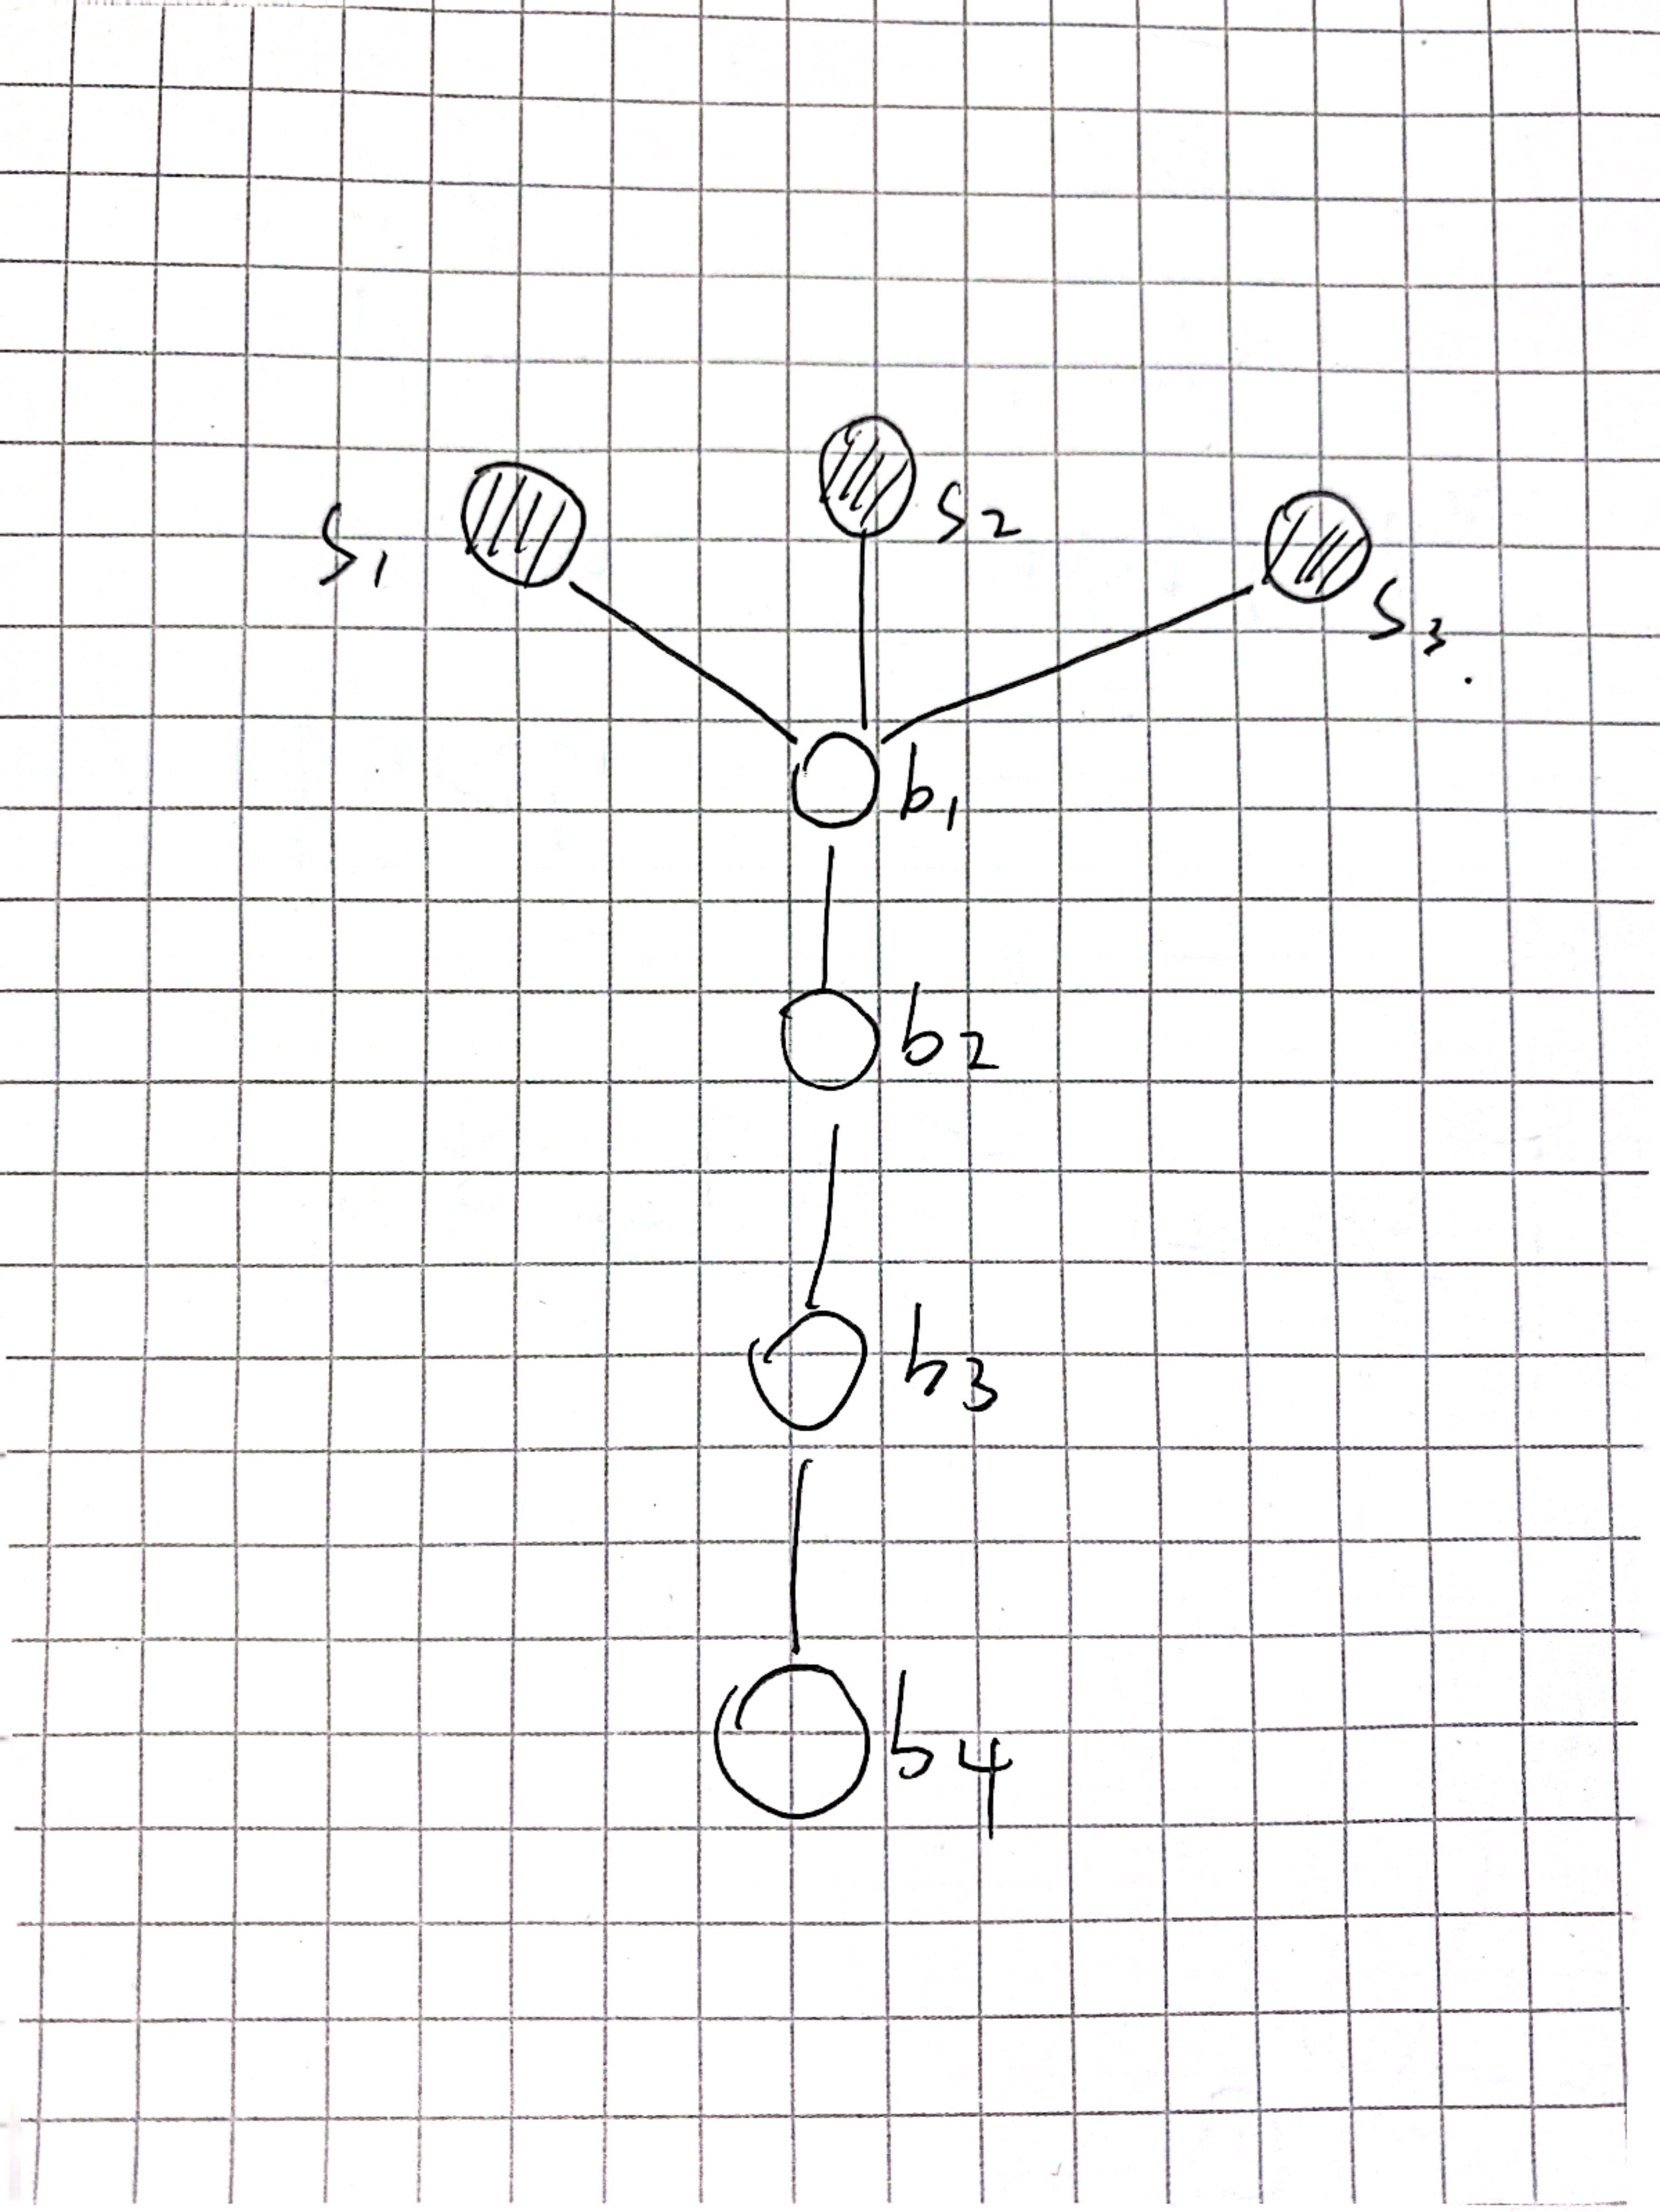 S1
S2
S3.
b1
b2
b3
b4